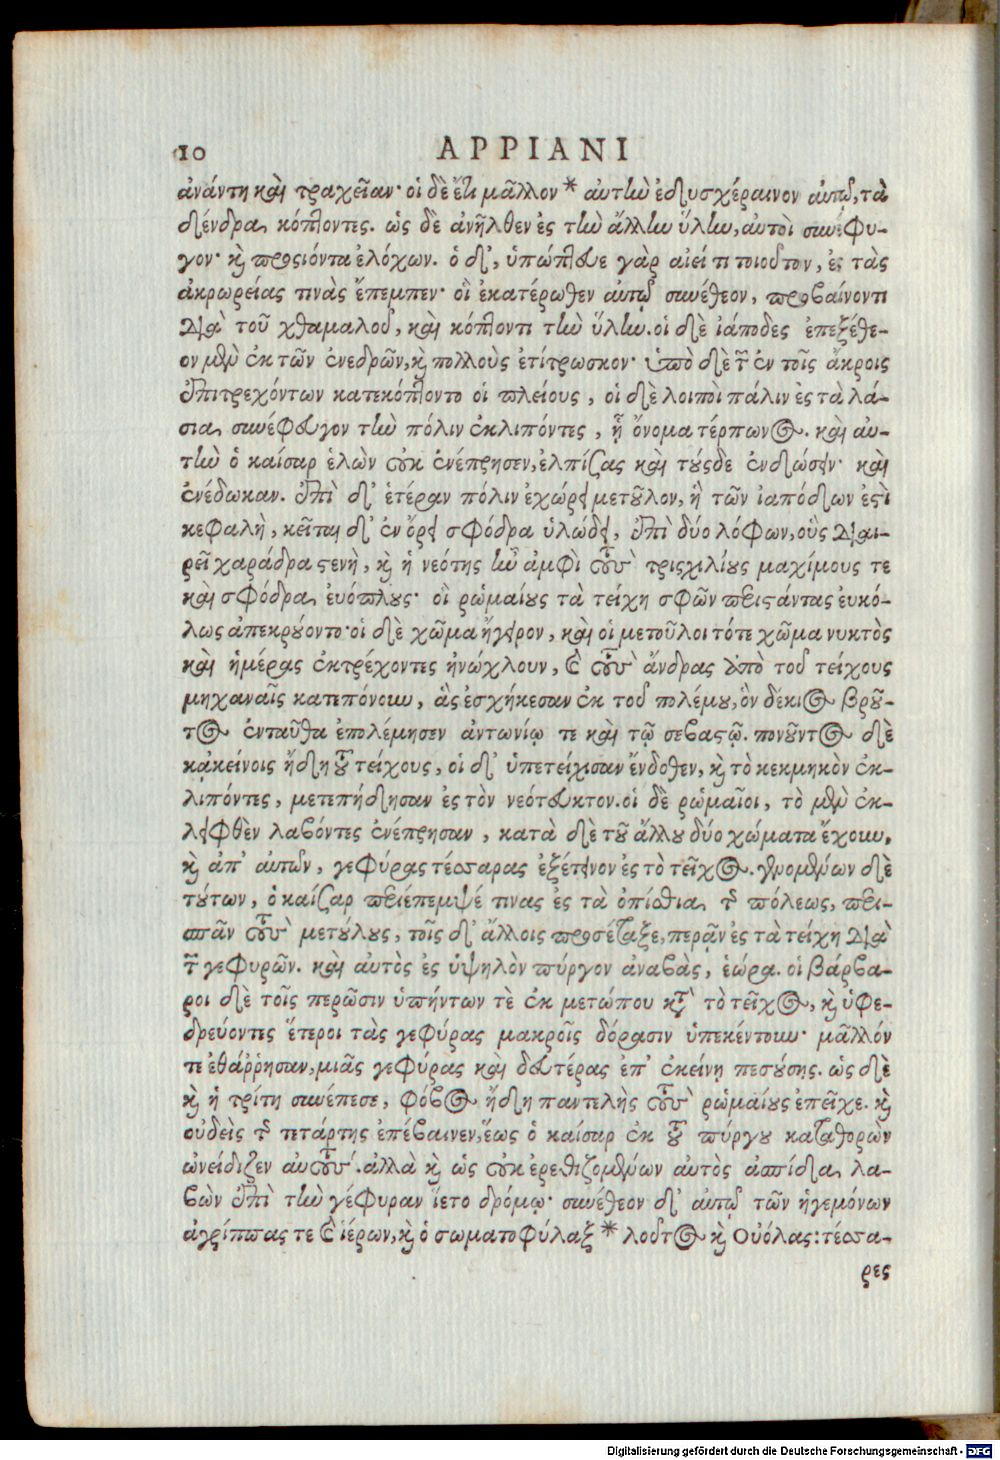 10 APPIANI
ἀνάντη καὶ τραχεῖαν· οἱ δὲ ἔτι μᾶλλον * αὐτὴν ἐδυσχέραινον αὐτῷ, τὰ
δένδρα κόπτοντες. ὡς δὲ ἀνῆλθεν ἐς τὴν ἄλλην ὕλην, αὐτοὶ συνέφυ-
γον· καὶ προσιόντα ἐλόχων. ὁ δ', ὑπώπτευε γὰρ αἰεί τι τοιοῦτον, ἐς τὰς
ἀκρωρείας τινὰς ἔπεμπεν· οἳ ἑκατέρωθεν αὐτῷ συνέθεον, προβαίνοντι
διὰ τοῦ χθαμαλοῦ, καὶ κόπτοντι τὴν ὕλην. οἱ δὲ ἰάποδες ἐπεξέθε-
ον μὲν ἐκ τῶν ἐνεδρῶν, καὶ πολλοὺς ἐτίτρωσκον· ὑπὸ δὲ τῶν ἐν τοῖς ἄκροις
ἐπιτρεχόντων κατεκόπτοντο οἱ πλείους, οἱ δὲ λοιποὶ πάλιν ἐς τὰ λά-
σια συνέφευγον τὴν πόλιν ἐκλιπόντες, ᾗ ὄνομα τέρπωνος. καὶ αὐ-
τὴν ὁ καίσαρ ἑλὼν οὐκ ἐνέπρησεν, ἐλπίσας καὶ τούσδε ἐνδώσειν· καὶ
ἐνέδωκαν. ἐπὶ δ' ἑτέραν πόλιν ἐχώρει μετοῦλον, ἣ τῶν ἰαπόδων ἐστὶ
κεφαλὴ, κεῖται δ' ἐν ὄρει σφόδρα ὑλώδει, ἐπὶ δύο λόφων, οὓς διαι-
ρεῖ χαράδρα στενὴ, καὶ ἡ νεότης ἦν ἀμφὶ τοὺς τρισχιλίους μαχίμους τε
καὶ σφόδρα εὐόπλους· οἳ ῥωμαίους τὰ τείχη σφῶν περιστάντας εὐκό-
λως ἀπεκρούοντο· οἱ δὲ χῶμα ἤγειρον, καὶ οἱ μετοῦλοι τότε χῶμα νυκτὸς
καὶ ἡμέρας ἐκτρέχοντες ἠνώχλουν, καὶ τοὺς ἄνδρας ἀπὸ τοῦ τείχους
μηχαναῖς κατεπόνουν, ἃς ἐσχήκεσαν ἐκ τοῦ πολέμου, ὃν δέκιος βροῦ-
τος ἐνταῦθα ἐπολέμησεν ἀντωνίῳ τε καὶ τῷ σεβαστῷ. πονοῦντος δὲ
κἀκείνοις ἤδη τοῦ τείχους, οἱ δ' ὑπετείχισαν ἔνδοθεν, καὶ τὸ κεκμηκὸν ἐκ-
λιπόντες, μετεπήδησαν ἐς τὸν νεότευκτον. οἱ δὲ ῥωμαῖοι, τὸ μὲν ἐκ-
λειφθὲν λαβόντες ἐνέπρησαν, κατὰ δὲ τοῦ ἄλλου δύο χώματα ἔχουν,
καὶ ἀπ' αὐτῶν, γεφύρας τέσσαρας ἐξέτεινον ἐς τὸ τεῖχος. γινομένων δὲ
τούτων, ὁ καίσαρ περιέπεμψέ τινας ἐς τὰ ὀπίσθια τῆς πόλεως, περι-
σπᾶν τοὺς μετούλους, τοῖς δ' ἄλλοις προσέταξε, περᾷν ἐς τὰ τείχη διὰ
τῶν γεφυρῶν. καὶ αὐτὸς ἐς ὑψηλὸν πύργον ἀναβὰς, ἑώρα. οἱ βάρβα-
ροι δὲ τοῖς περῶσιν ὑπήντων τὲ ἐκ μετώπου κατὰ τὸ τεῖχος, καὶ ὑφε-
δρεύοντες ἕτεροι τὰς γεφύρας μακροῖς δόρασιν ὑπεκέντουν· μᾶλλόν
τε ἐθάῤῥησαν, μιᾶς γεφύρας καὶ δευτέρας ἐπ' ἐκείνῃ πεσούσης. ὡς δὲ
καὶ ἡ τρίτη συνέπεσε, φόβος ἤδη παντελὴς τοὺς ῥωμαίους ἐπεῖχε. καὶ
οὐδεὶς τῆς τετάρτης ἐπέβαινεν, ἕως ὁ καίσαρ ἐκ τοῦ πύργου καταθορὼν
ὠνείδιζεν αὐτούς. ἀλλὰ καὶ ὡς οὐκ ἐρεθιζομένων αὐτὸς ἀσπίδα λα-
βὼν ἐπὶ τὴν γέφυραν ἵετο δρόμῳ· συνέθεον δ' αὐτῷ τῶν ἡγεμόνων
ἀγρίππας τε καὶ ἱέρων, καὶ ὁ σωματοφύλαξ * λοῦτος καὶ Οὐόλας: τέσσα-
ρες
Digitalisierung gefördert durch die Deutsche Forschungsgemeinschaft - DFG